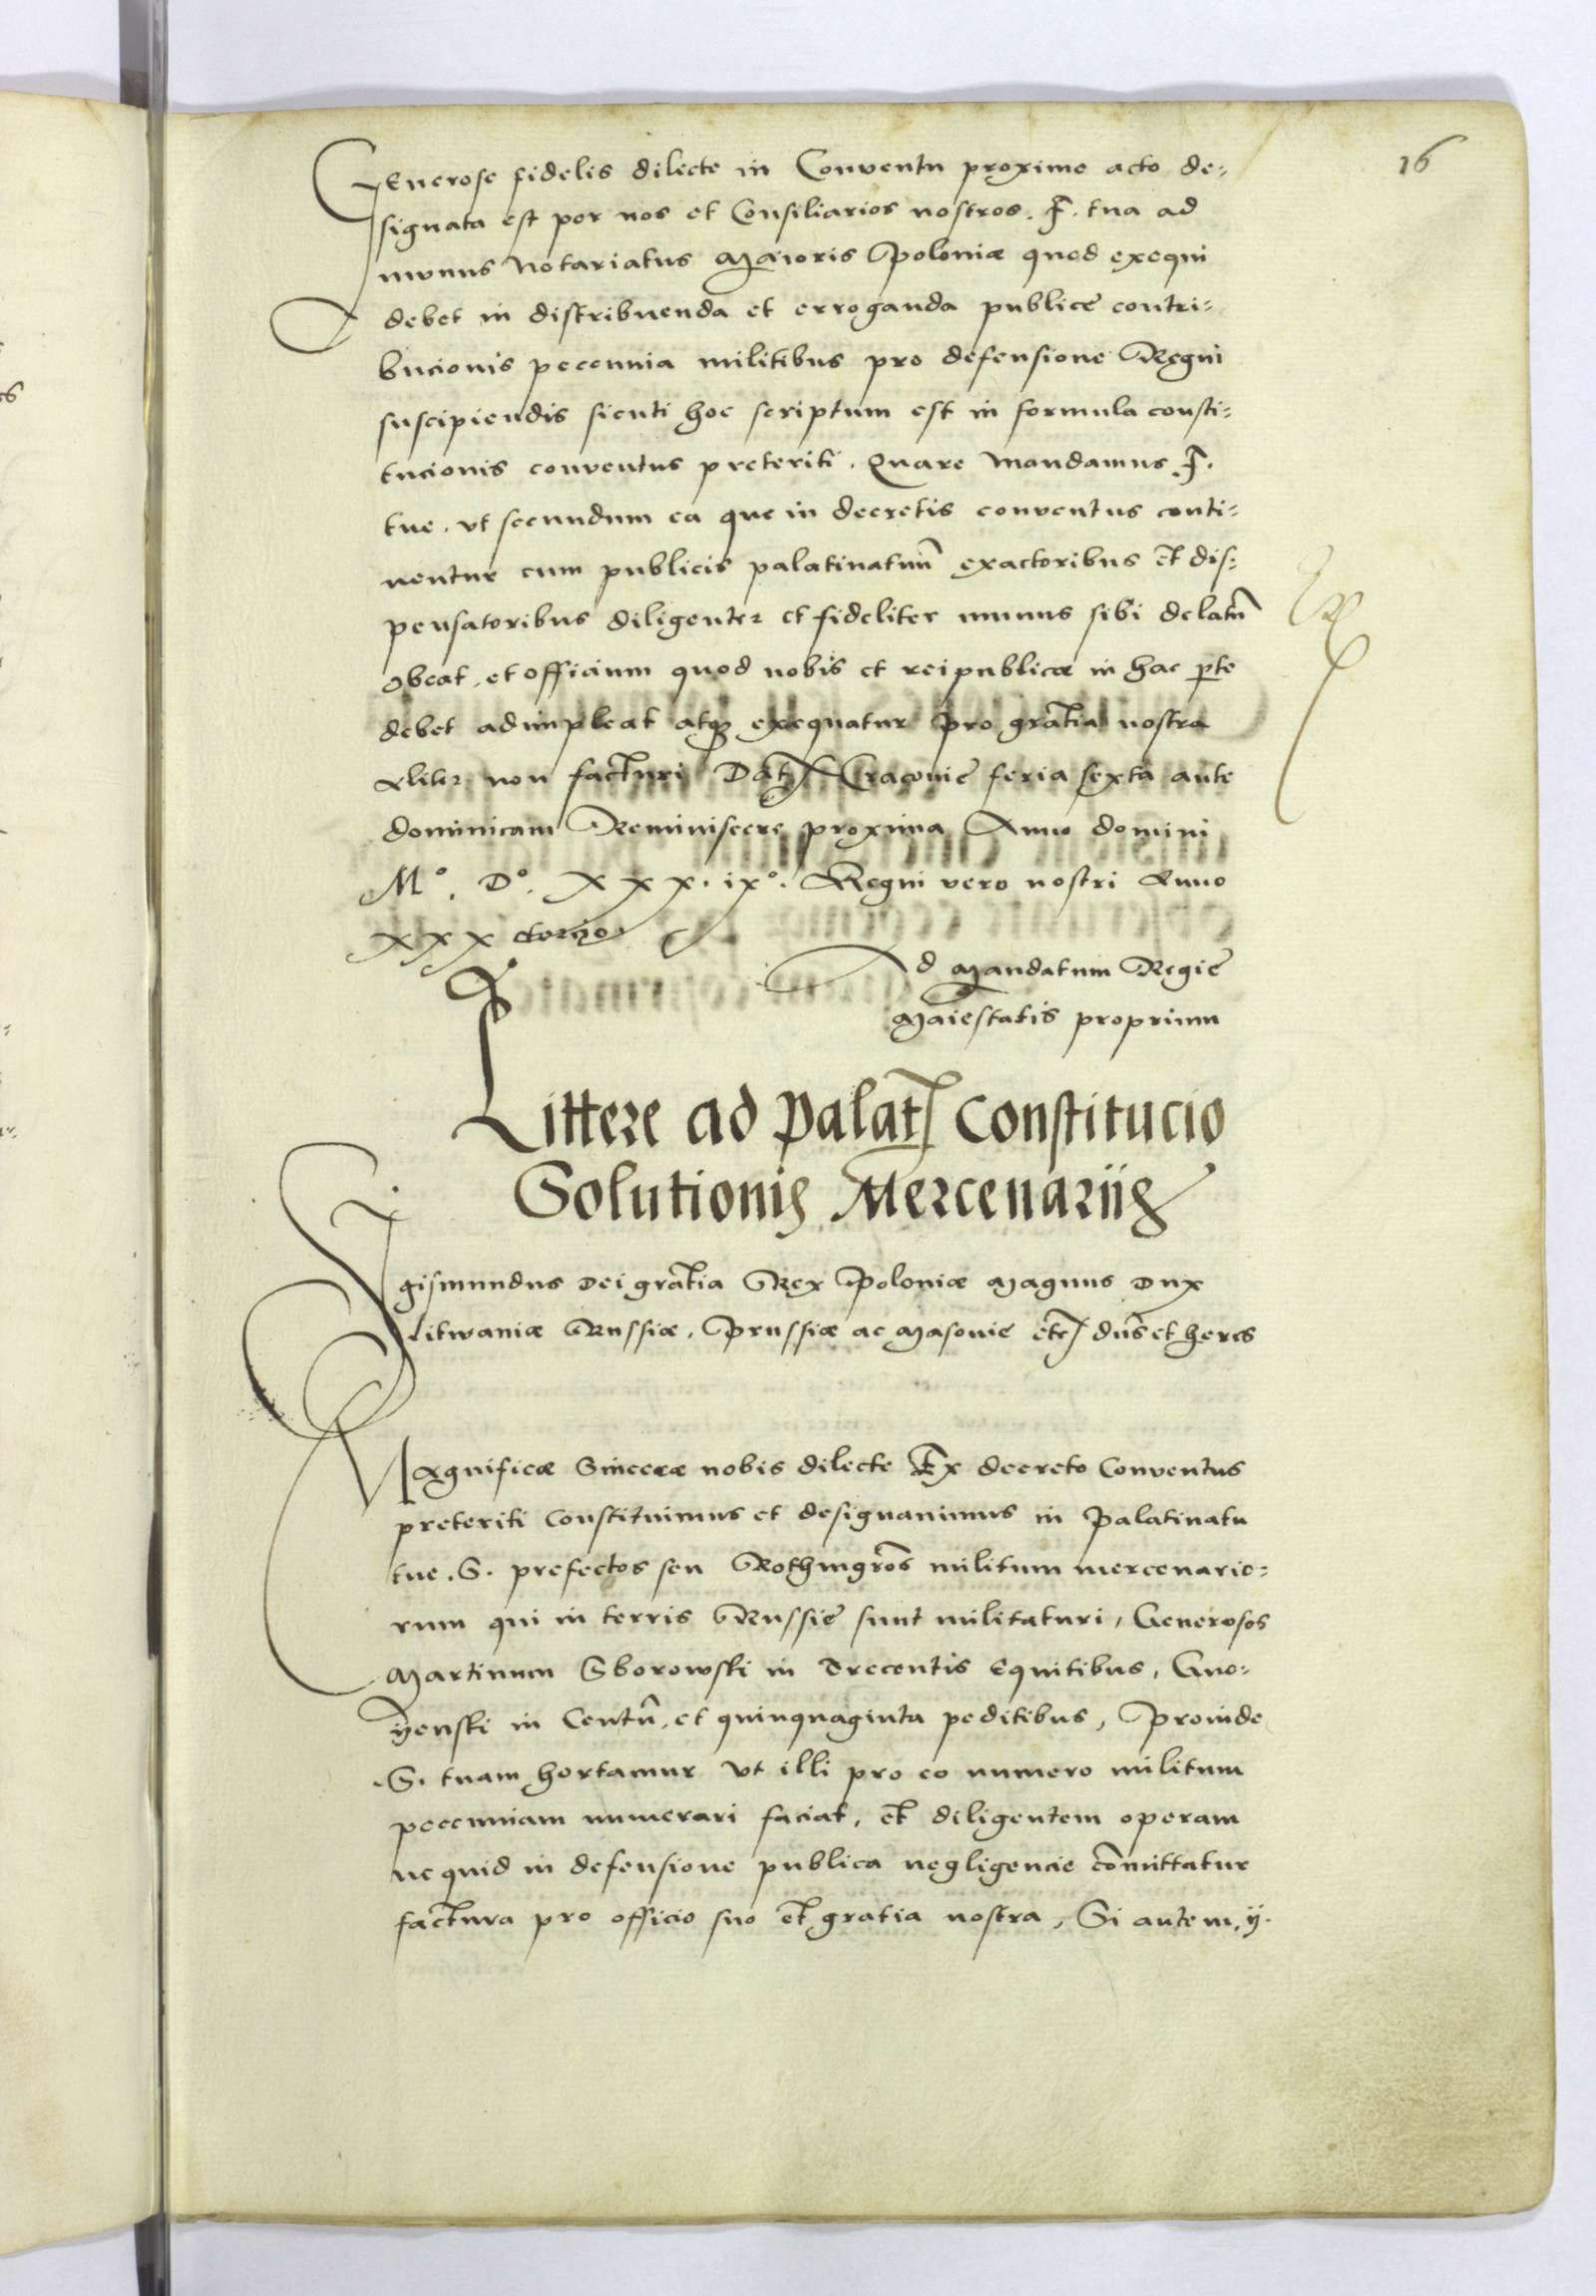 16
Generose fidelis dilecte in Conventu proximo acto de=
signata est per nos et Consiliarios nostros. F. tua ad
munus Notariatus Maioris Poloniæ quod exequi
debet in distribuenda et erroganda publice contri=
bucionis peccunia militibus pro defensione Regni
suscipiendis sicuti hoc scriptum est in formula consti=
tucionis conventus preteriti. Quare mandamus F.
tue. vt secundum ea que in decretis conventus conti=
nentur cum publicis palatinatuū exactoribus et dis=
pensatoribus diligenter et fideliter munus sibi delatū
obeat, et officium quod nobis et reipublicæ in hac pte
debet adimpleat atq3 exequatur pro gratia nostra
alitr non facturi Dat Cracovie feria sexta ante
dominicam Reminiscere proxima Anno domini
Mº. Dº. XXX. ixº. Regni vero nostri Anno
XXX
Ad Mandatum Regie
Maiestatis proprium
Littere ad Palat Constitucio
Solutionis Mercenariis
Sigismundus Dei gratia Rex Poloniæ Magnus Dux
Litwaniæ Russiæ, Prussiæ ac Masovie etc dns et heres
Magnificæ Sinceræ nobis dilecte Ex decreto Conventus
preteriti constituimus et designavimus in Palatinatu
tue. S. prefectos seu Rothmgros militum mercenario=
rum qui in terris Russie sunt militaturi, Generosos
Martinum Sborowski in Trecentis Equitibus, Gno=
yenski in Centū, et quinquaginta peditibus, Proinde
S. tuam hortamur vt illi pro eo numero militum
peccuniam numerari faciat, et diligentem operam
ne quid in defensione publica negligencie cōmittatur
factura pro officio suo et gratia nostra, Si autem, ij.